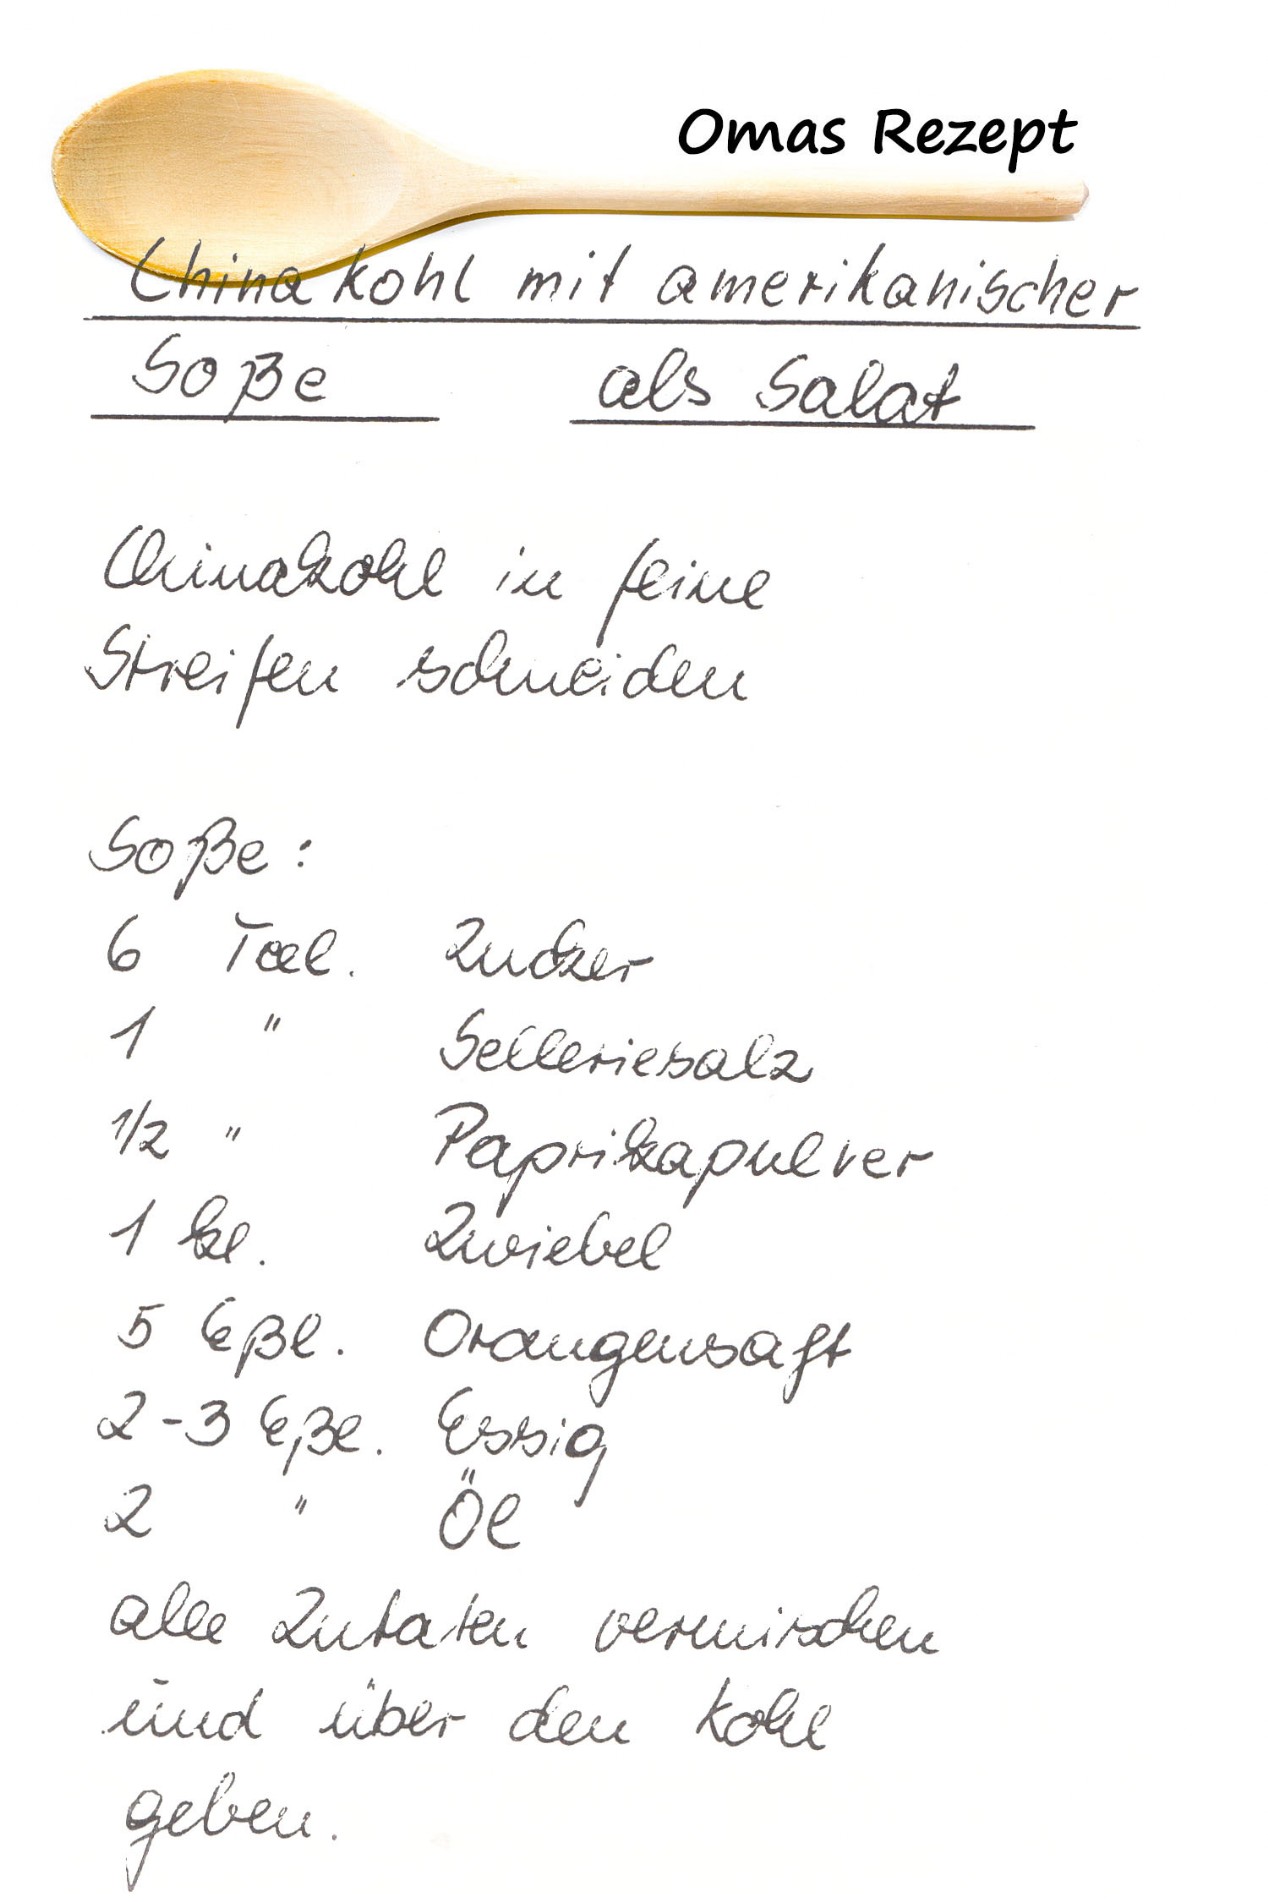 Omas Rezept
Chinakohl mit amerikanischer
Soße als Salat
Chinakohl in feine
Streifen schneiden
Soße:
6 Teel. Zucker
1 " Selleriesalz
1/2 " Paprikapulver
1 kl. Zwiebel
5 Eßl. Orangensaft
2-3 Eßl. Essig
2 " Öl
alle Zutaten vermischen
und über den Kohl
geben.